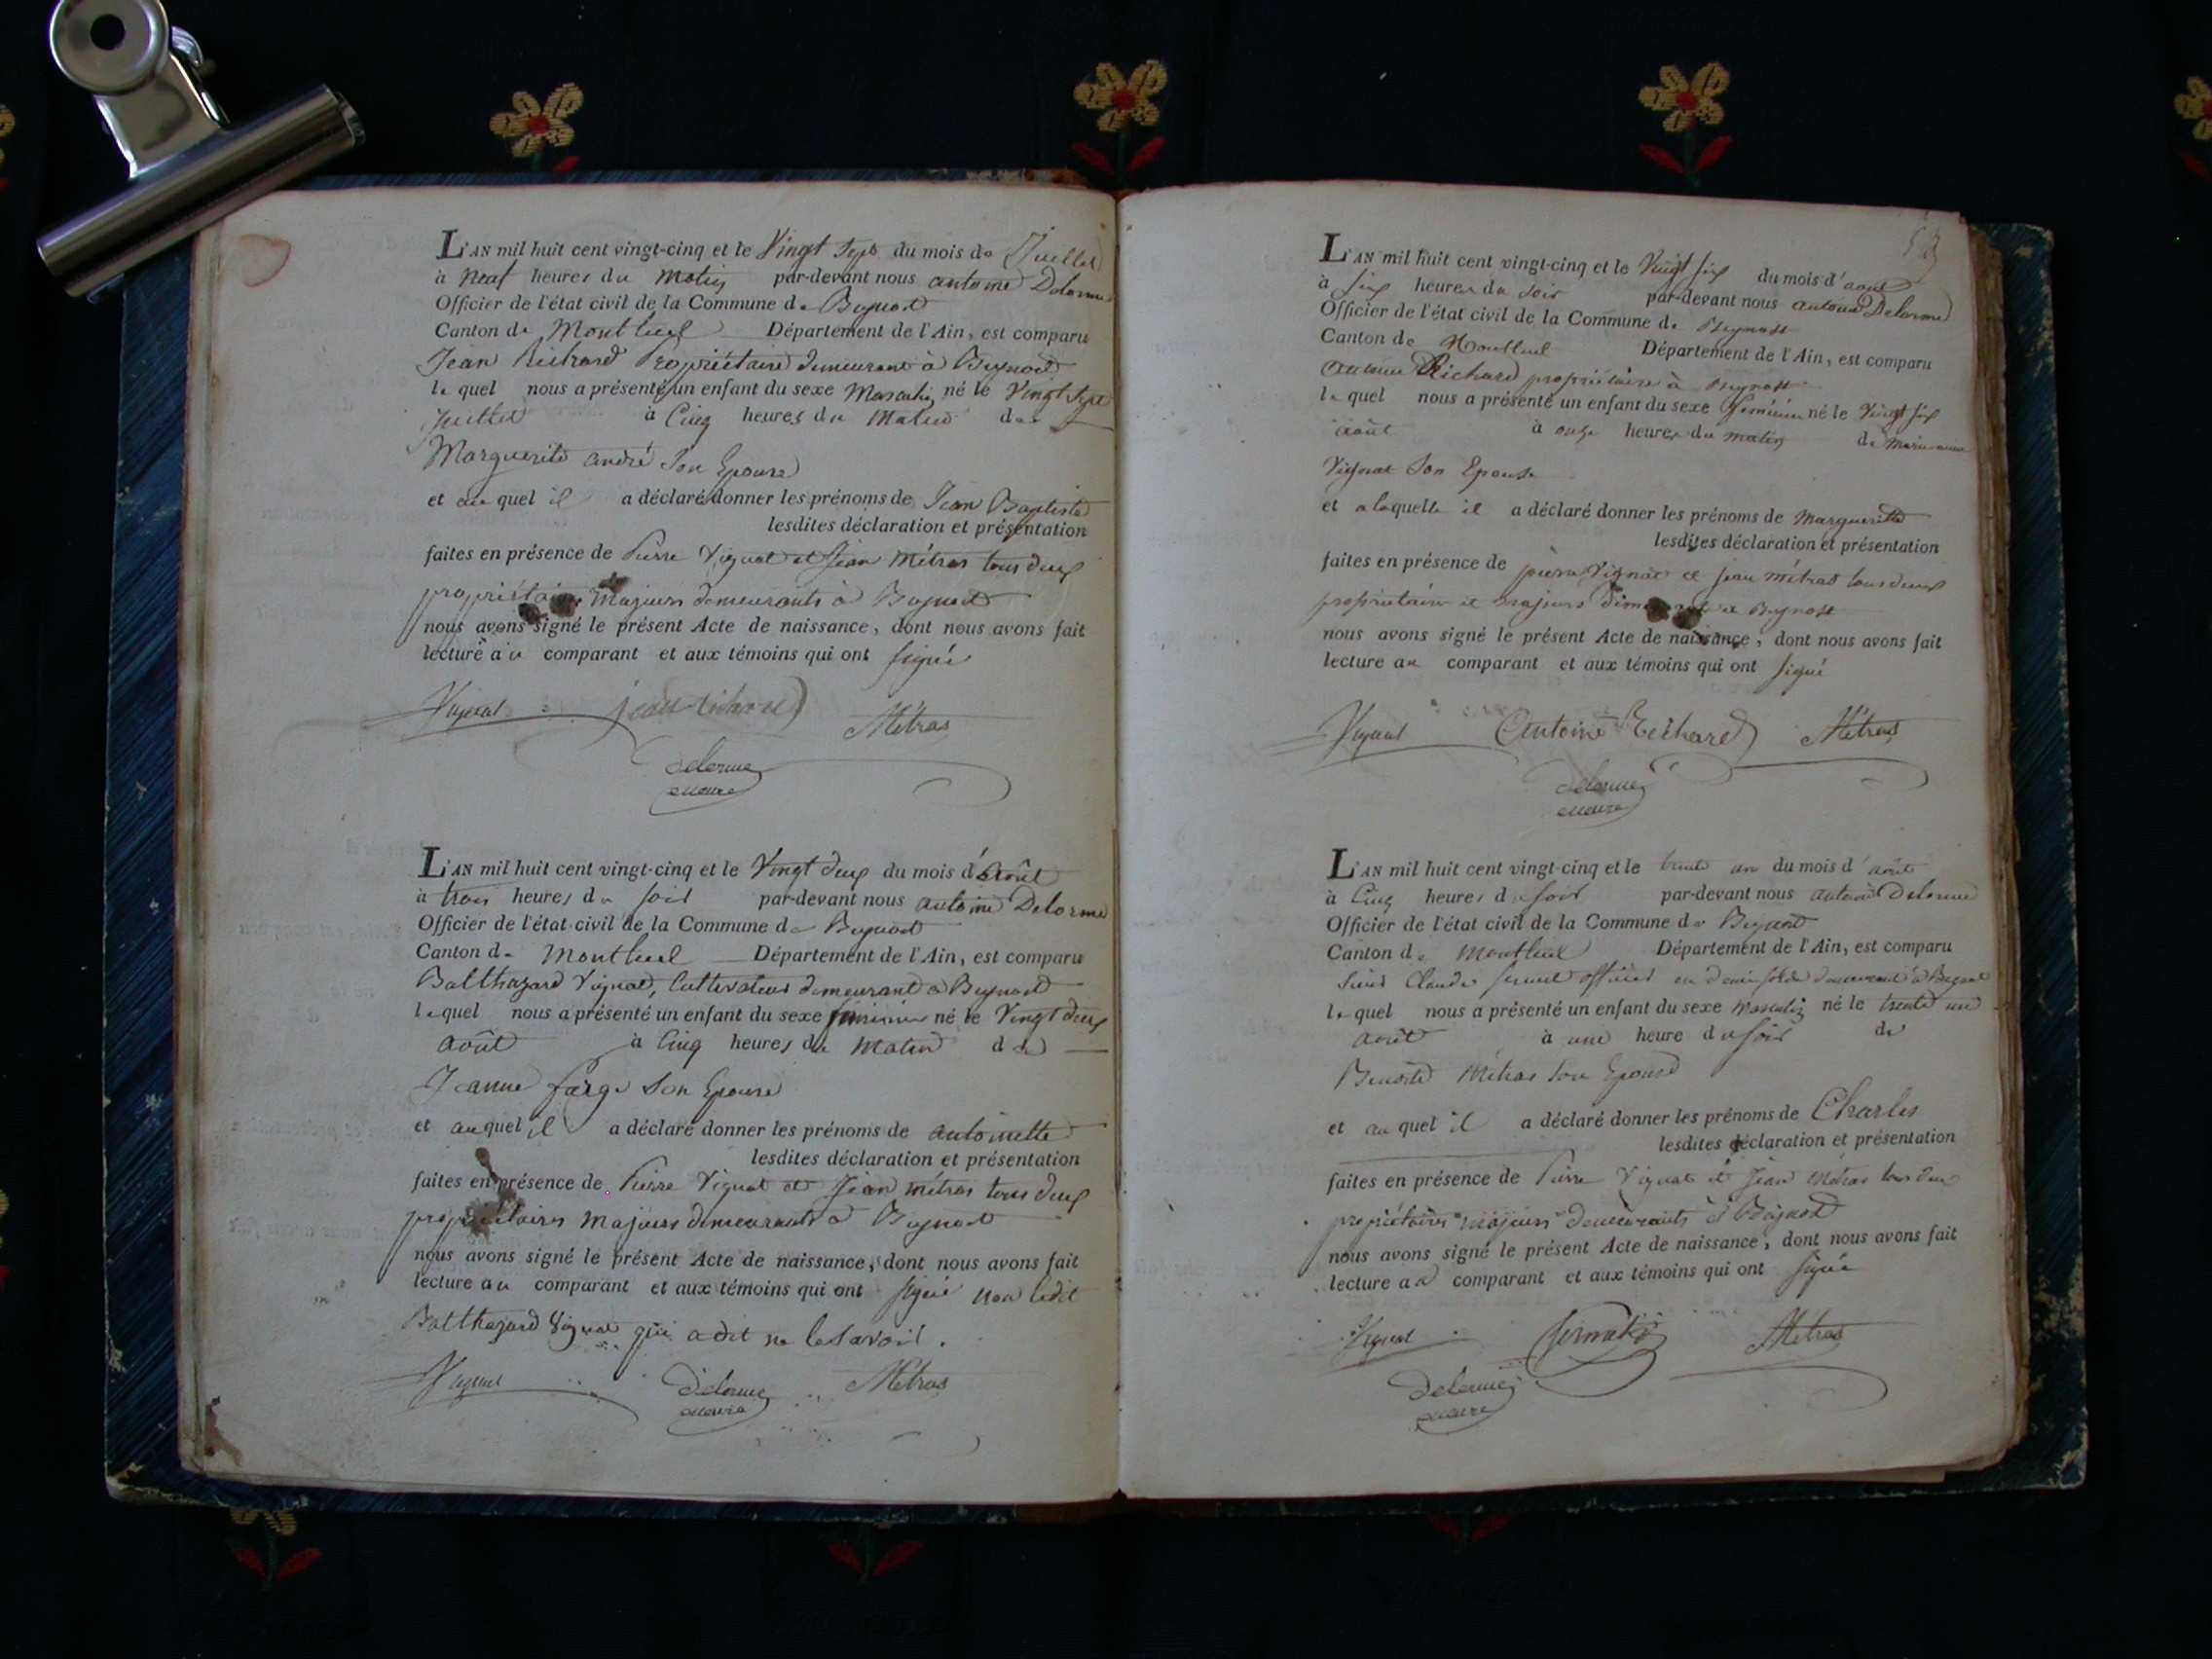 L'AN mil huit cent vingt-cinq et le Vingt Sept du mois de Juillet
à neuf heures du matin par-devant nous antoine Delorme
Officier de l'état civil de la Commune de Beynost
Canton de Montluel Département de l'Ain, est comparu
Jean Richard Propriétaire demeurant à Beynost
lequel nous a présenté un enfant du sexe Masculin né le Vingt Sept
Juillet à Cinq heures du Matin de
Marguerite andré Son Epouse
et auquel il a déclaré donner les prénoms de Jean Baptiste
lesdites déclaration et présentation
faites en présence de Pierre Vignat et Jean Métras tous deux
propriétaires Majeurs demeurants à Beynost
nous avons signé le présent Acte de naissance, dont nous avons fait
lecture au comparant et aux témoins qui ont signé
Vignat jean richard Métras
delorme
maire
L'AN mil huit cent vingt-cinq et le Vingt deux du mois d'Août
à trois heures du soir par-devant nous antoine Delorme
Officier de l'état civil de la Commune de Beynost
Canton de Montluel Département de l'Ain, est comparu
Balthazard Vignat, Cultivateur demeurant à Beynost
lequel nous a présenté un enfant du sexe féminin né le Vingt deux
août à Cinq heures du Matin de
Jeanne farge Son Epouse
et auquel il a déclaré donner les prénoms de antoinette
lesdites déclaration et présentation
faites en présence de Pierre Vignat et Jean métras tous deux
propriétaires Majeurs demeurants à Beynost
nous avons signé le présent Acte de naissance, dont nous avons fait
lecture au comparant et aux témoins qui ont signé non ledit
Balthazard Vignat qui a dit ne le savoir.
Vignat Delorme Métras
maire
53
L'AN mil huit cent vingt-cinq et le Vingt six du mois d'aout
à six heures du soir par-devant nous antoine Delorme
Officier de l'état civil de la Commune de Beynost
Canton de Montluel Département de l'Ain, est comparu
Antoine Richard propriétaire à Beynost
lequel nous a présenté un enfant du sexe féminin né le Vingt six
août à onze heures du matin de marie anne
Vignat Son Epouse
et a laquelle il a déclaré donner les prénoms de Marguerite
lesdites déclaration et présentation
faites en présence de pierre Vignat et jean métras tous deux
propriétaire et majeurs demeurant à Beynost
nous avons signé le présent Acte de naissance, dont nous avons fait
lecture au comparant et aux témoins qui ont signé
Vignat Antoine Richard Métras
delorme
maire
L'AN mil huit cent vingt-cinq et le trente un du mois d'août
à Cinq heures du soir par-devant nous antoine Delorme
Officier de l'état civil de la Commune de Beynost
Canton de Montluel Département de l'Ain, est comparu
Claude officier en demi solde demeurant à Beynost
lequel nous a présenté un enfant du sexe Masculin né le trente un
août à une heure du soir de
Benoite Métras Son Epouse
et auquel il a déclaré donner les prénoms de Charles
lesdites déclaration et présentation
faites en présence de Pierre Vignat et Jean Métras tous deux
propriétaires majeurs demeurants à Beynost
nous avons signé le présent Acte de naissance, dont nous avons fait
lecture au comparant et aux témoins qui ont signé
Vignat Métras
Delorme
maire